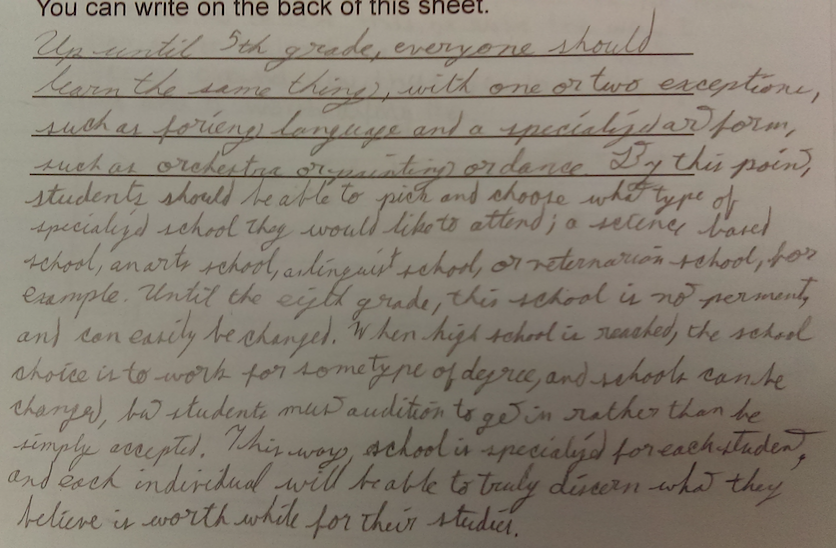 You can write on the back of this sheet.
Up until 5th grade, everyone should
learn the same things, with one or two exceptions,
such as forieng language and a specialized art form,
such as orchestra or painting or dance. By this point,
students should be able to pick and choose what type of
specialized school they would like to attend; a science based
school, an arts school, a linguist school, or veternarian school, for
example. Until the eigth grade, this school is not perment,
and can easily be changed. When high school is reached, the school
choice is to work for some type of degree, and schools can be
changed, but students must audition to get in rather than be
simply accepted. This way, school is specialized for each student,
and each individual will be able to truly discern what they
believe is worth while for their studies.